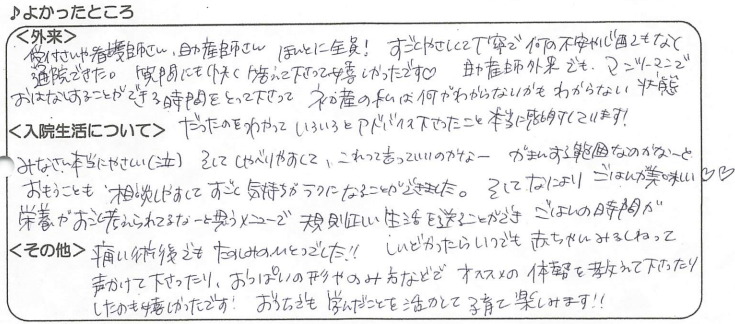 ♪よかったところ
<外来>
受付さんや看護師さん、助産師さん ほんとに全員！ すごくやさしくて丁寧で何の不安や心配もなく
通院できた。質問にも快く答えて下さって嬉しかったです♡ 助産師外来でも、マンツーマンで
おはなしすることができる時間をとって下さって 初産の私は何がわからないかもわからない状態
<入院生活について> だったのをわかって いろいろとアドバイス下さったこと 本当に感謝しています!
みなさん本当にやさしい(泣) そして しゃべりやすくて、これって言っていいのかなー がまんする範囲なのかなーと
おもうことも 相談しやすくて すごく気持ちがラクになることができました。そしてなにより ごはんが美味しい♡♡
栄養がおご考えられてるなーと思うメニューで 規則正しい生活を送ることができ ごはんの時間が
<その他> 痛い術後でも たのしみのひとつでした!! しんどかったらいつでも 赤ちゃんみるしねって
声かけて下さったり、おっぱいの形やのみ方などで オススメの 体勢を教えて下さったり
したのも嬉しかったです! おうちでも 学んだことを活かして 子育て 楽しみます!!